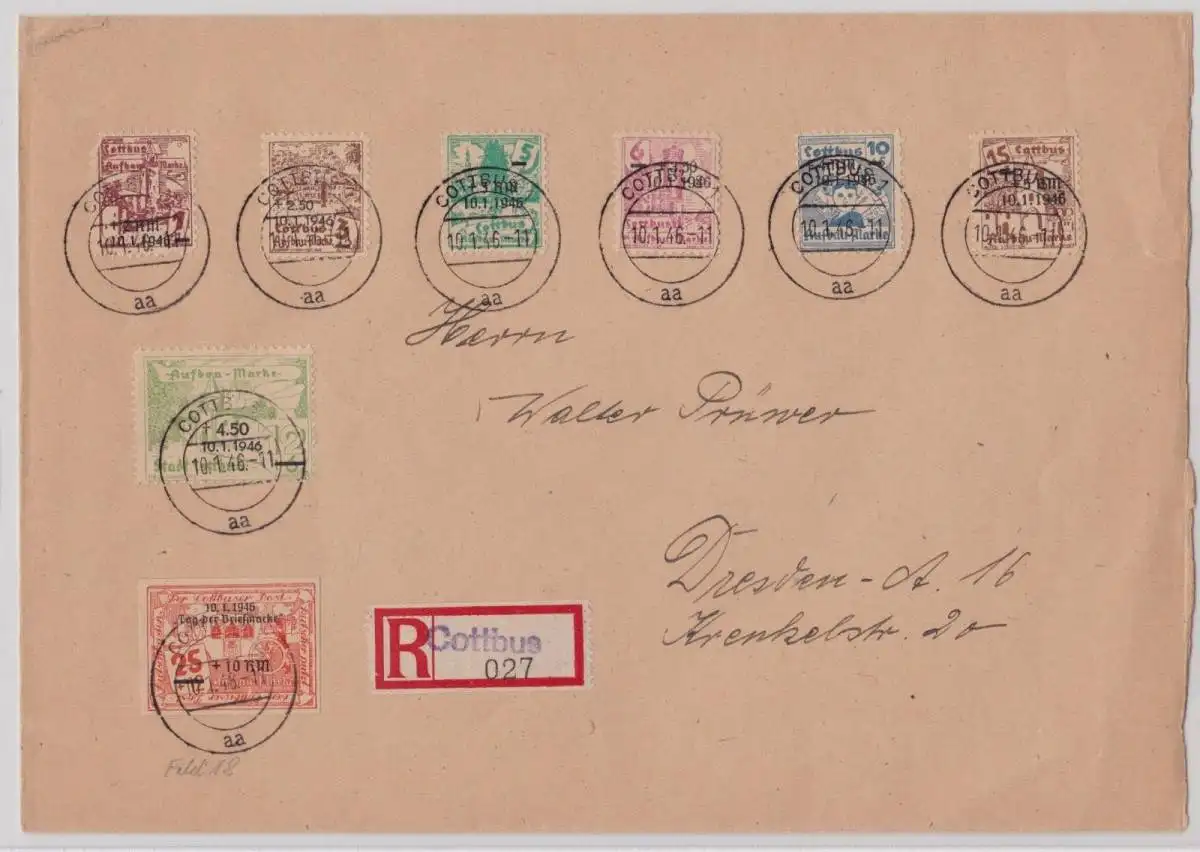 Cottbus
Aufbau-Marke
1
+ 2 RM
10.1.1946
COTTBUS
10.1.46.-11
aa
3
+ 2.50
10.1.1946
Cottbus
Aufbau-Marke
COTTBUS
aa
5
4 RM
10.1.1946
Cottbus
COTTBUS
10.1.46.-11
aa
6
10.1.1946
COTTBUS
10.1.46.-11
aa
10
Cottbus
Aufbau-Marke
COTTBUS
10.1.46.-11
aa
15
Cottbus
10.1.1946
Aufbau-Marke
COTTBUS
10.1.46.-11
aa
Herrn
Walter Prüwer
Dresden-A. 16
Krenkelstr. 20
Aufbau-Marke
+ 4.50
10.1.1946
Stadt
12
COTTBUS
10.1.46.-11
aa
Der Cottbuser Post
10.1.1946
"Tag der Briefmarke"
25
+ 10 RM
aa
R
Cottbus
027
Feld 18